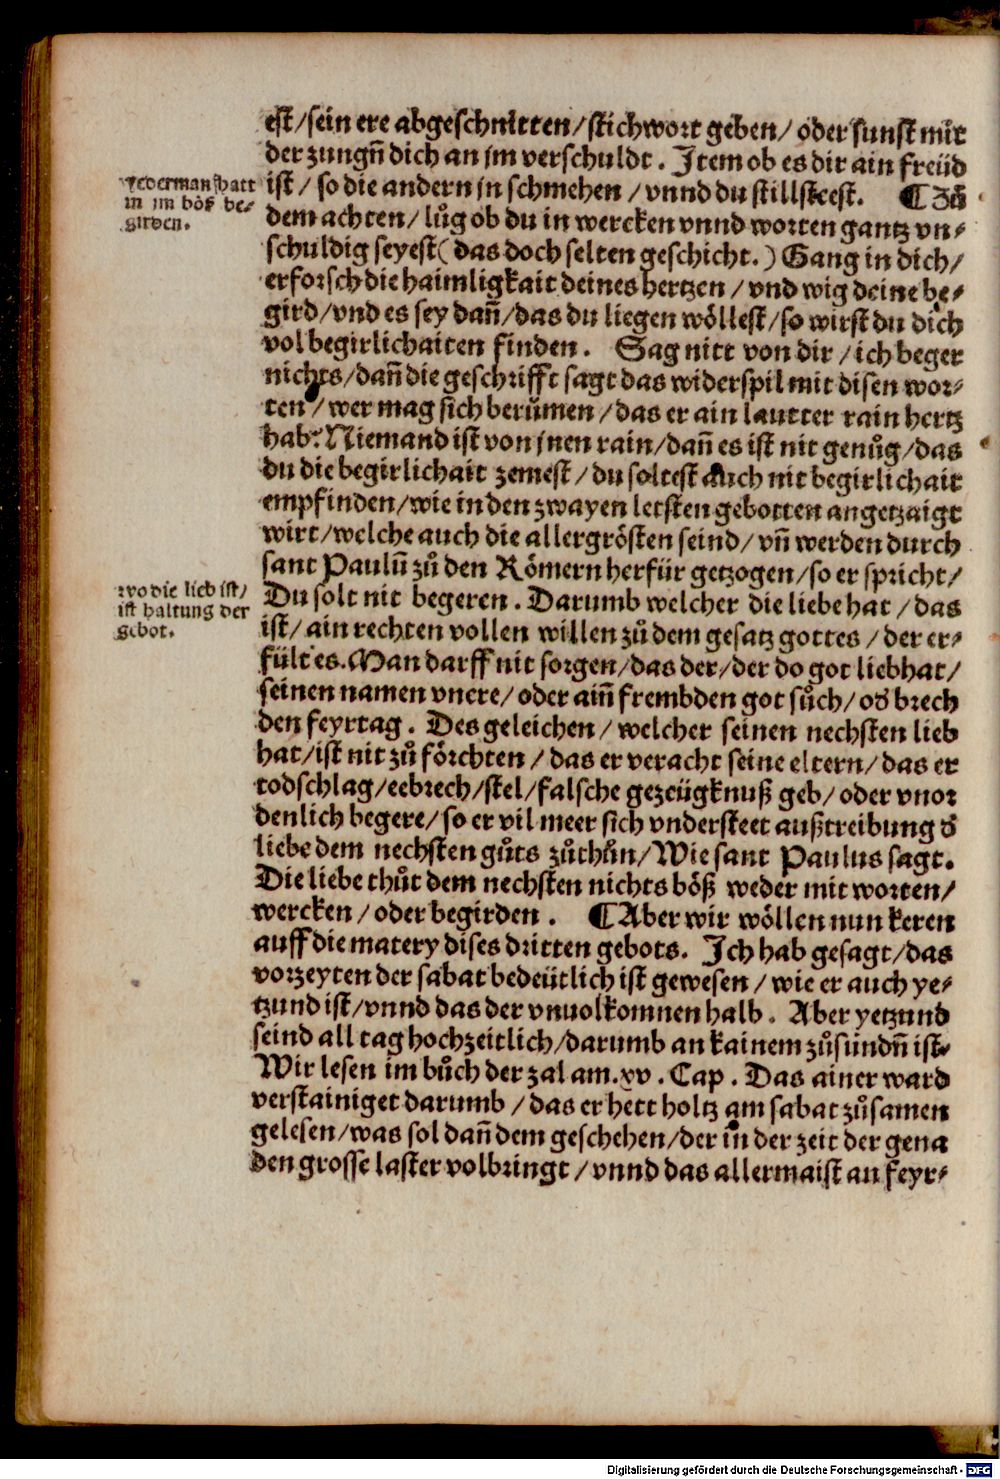 est/sein ere abgeschnitten/stichwort geben/oder sunst mit
der zungn̄ dich an jm verschuldt. Item ob es dir ain freüd
ist/so die andern jn schmehen/vnnd du stillsteest. ¶Zů
dem achten/lůg ob du in wercken vnnd worten gantz vn⸗
schuldig seyest(das doch selten geschicht.) Gang in dich/
erforsch die haimligkait deines hertzen/vnd wig deine be⸗
gird/vnd es sey dañ/das du liegen wöllest/so wirst du dich
vol begirlichaiten finden. Sag nitt von dir/ich beger
nichts/dañ die geschrifft sagt das widerspil mit disen wor⸗
ten/wer mag sich berůmen/das er ain lautter rain hertz
hab? Niemand ist von jnen rain/dañ es ist nit genůg/das
du die begirlichait zemest/du soltest auch nit begirlichait
empfinden/wie in den zwayen letsten gebotten angetzaigt
wirt/welche auch die allergrösten seind/vñ werden durch
sant Paulū zů den Römern herfür getzogen/so er spricht/
Du solt nit begeren. Darumb welcher die liebe hat/das
ist/ain rechten vollen willen zů dem gesatz gottes/der er⸗
fült es. Man darff nit sorgen/das der/der do got liebhat/
seinen namen vnere/oder aiñ frembden got sůch/od̕ brech
den feyrtag. Des geleichen/welcher seinen nechsten lieb
hat/ist nit zů förchten/das er veracht seine eltern/das er
todschlag/eebrech/stel/falsche gezeügknuß geb/oder vnor
denlich begere/so er vil meer sich vndersteet außtreibung d̕
liebe dem nechsten gůts zůthůn/Wie sant Paulus sagt.
Die liebe thůt dem nechsten nichts böß weder mit worten/
wercken/oder begirden. ¶Aber wir wöllen nun keren
auff die matery dises dritten gebots. Ich hab gesagt/das
vorzeyten der sabat bedeütlich ist gewesen/wie er auch ye⸗
tzund ist/vnnd das der vnuolkomnen halb. Aber yetzund
seind all tag hochzeitlich/darumb an kainem zůsündn̄ ist⸗
Wir lesen im bůch der zal am.xv. Cap. Das ainer ward
verstainiget darumb/das er hett holtz am sabat zůsamen
gelesen/was sol dañ dem geschehen/der in der zeit der gena
den grosse laster volbringt/vnnd das allermaist an feyr⸗
yederman hatt
in im böß be⸗
girden.
wo die lieb ist/
ist haltung der
gebot.
Digitalisierung gefördert durch die Deutsche Forschungsgemeinschaft - DFG